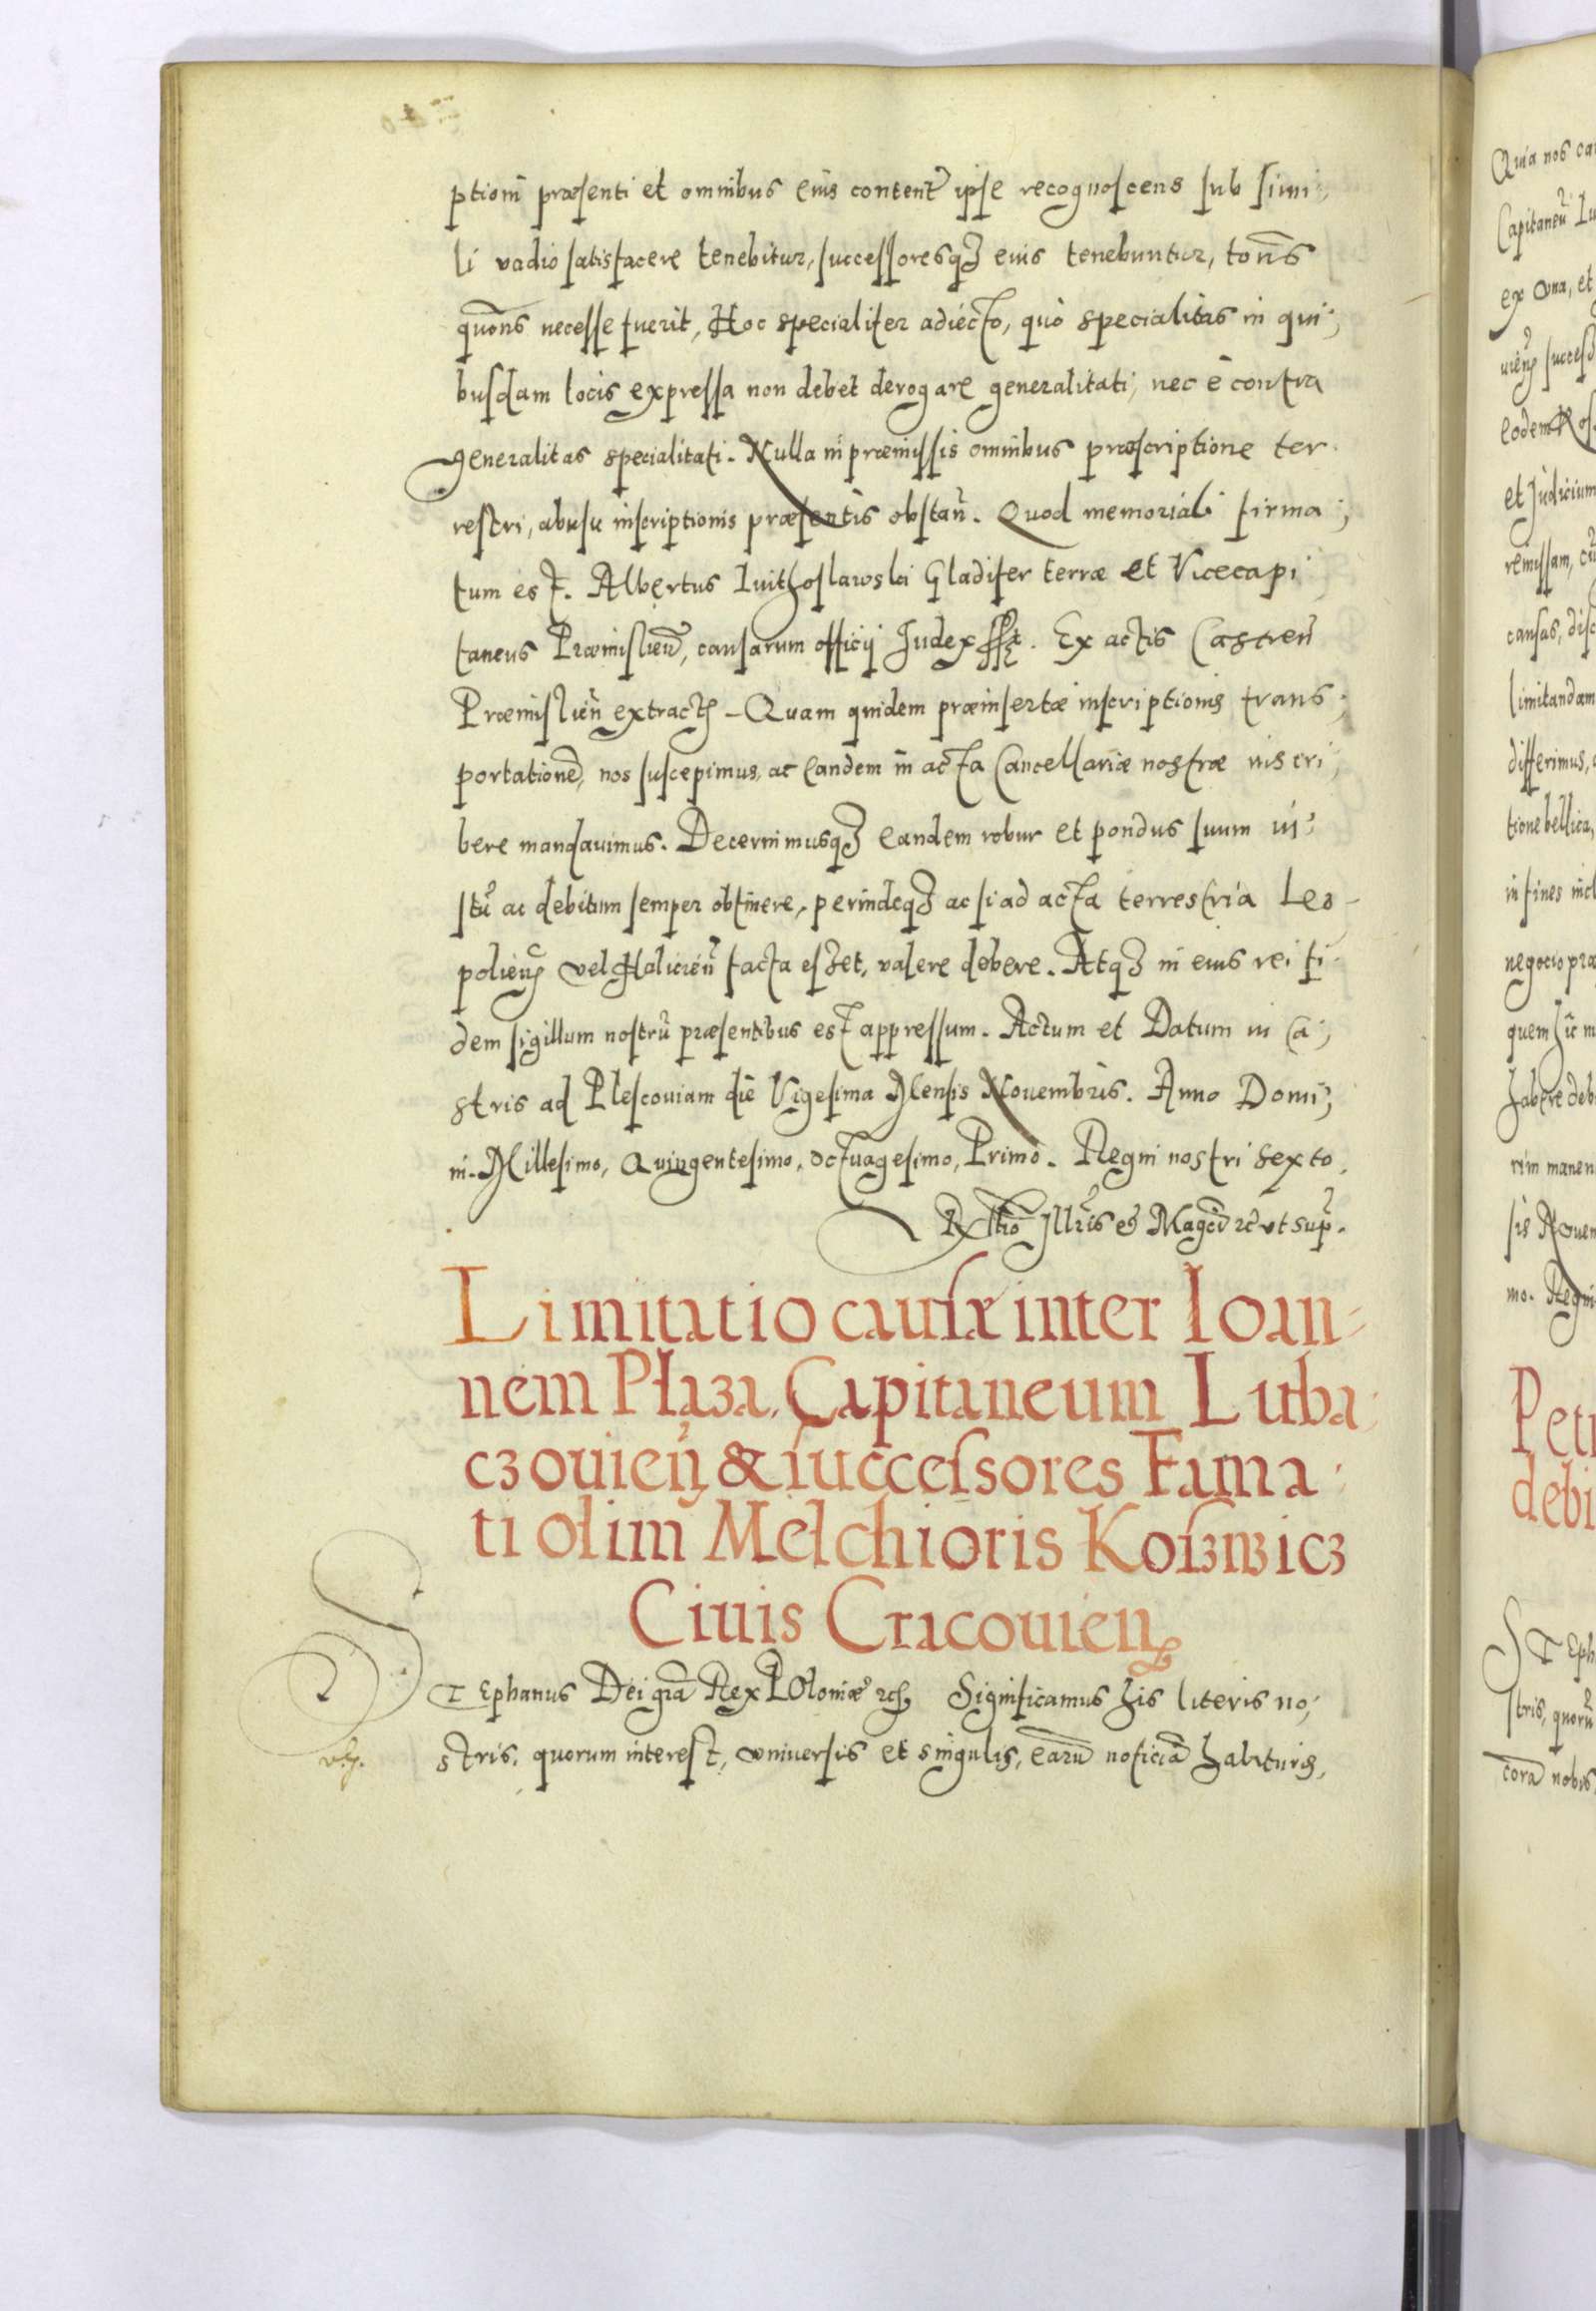 ptioni præsenti et omnibus eius content̃ ipse recognoscens sub simi;
li vadio satisfacere tenebitur, successoresq3 eius tenebuntur, toñs
quõns necesse fuerit, Hoc specialiter adiecto, quò specialitas in qui;
busdam locis expressa non debet derogare generalitati, nec è contra
generalitas specialitati. Nulla in præmissis omnibus præscriptione ter
restri, abusu inscriptionis præsentis obstañ. Quod memoriali firma;
tum est. Albertus Gladifer terræ et Vicecapi
taneus Præmislień, causarum officij Judex sst. Ex actis Castreñ
Præmislień extract̃ – Quam quidem præinsertæ inscriptionis trans;
portationẽ, nos suscepimus, ac eandem in acta Cancellariæ nostræ inscri;
bere mandauimus. Decernimusq3 eandem robur et pondus suum iu;
stũ ac debitum semper obtinere, perindeq3 ac si ad acta terrestria Leo-
polień vel Halicień facta esset, valere debere. Atq3 in eius rei fi
dem sigillum nostrũ præsentibus est appressum. Actum et Datum in Ca;
stris ad Plescouiam die Vigesima Mensis Nouembris. Anno Domi;
ni. Millesimo, Quingentesimo, octuagesimo, Primo. Regni nostri sexto.
Rltio Illris et Magci rc ut sup.
Limitatio causæ inter Ioan-
nem Płaza, Capitaneum Luba
czouień & successores Fama
ti olim Melchioris Koszwicz
Ciuis Cracouień
STEphanus Dei gra Rex POloniæ rc Significamus his literis no;
stris, quorum interest, vniuersis et singulis, earũ noticiã habituris,
Quia nos ca
Capitaneũ Lu
ex vna, et
eodem
et Judicium
remissam,
causas, disc
limitandam
differimus,
tione bellica,
in fines
negocio præ
quem
habere deb
rim manen
sis Nouem
mo. Regni
Petr
debi
STEph
stris, quorũ
corã nobis